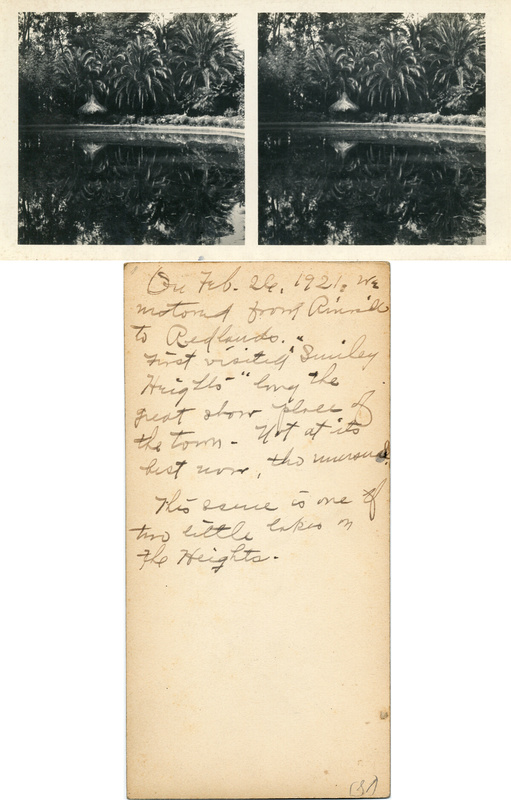 On Feb. 26, 1921, we
motored from
to Redlands.
First visited "Smiley
Heights" long the
great show place of
the town - Not at its
best now, tho
This scene is one of
two little lakes on
the Heights.